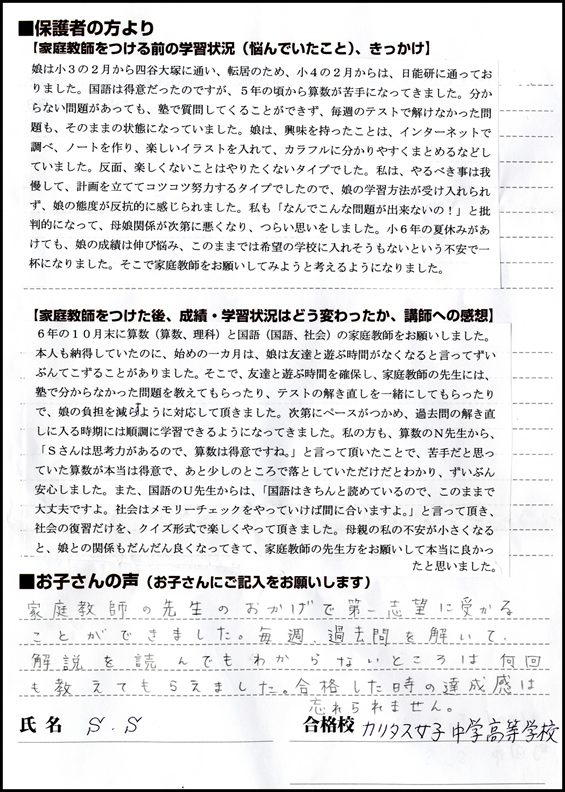 ■保護者の方より
【家庭教師をつける前の学習状況（悩んでいたこと）、きっかけ】
娘は小３の２月から四谷大塚に通い、転居のため、小４の２月からは、日能研に通ってお
りました。国語は得意だったのですが、５年の頃から算数が苦手になってきました。分か
らない問題があっても、塾で質問してくることができず、毎週のテストで解けなかった問
題も、そのままの状態になっていました。娘は、興味を持ったことは、インターネットで
調べ、ノートを作り、楽しいイラストを入れて、カラフルに分かりやすくまとめるなどし
ていました。反面、楽しくないことはやりたくないタイプでした。私は、やるべき事は我
慢して、計画を立ててコツコツ努力するタイプでしたので、娘の学習方法が受け入れられ
ず、娘の態度が反抗的に感じられました。私も「なんでこんな問題が出来ないの！」と批
判的になって、母娘関係が次第に悪くなり、つらい思いをしました。小６年の夏休みがあ
けても、娘の成績は伸び悩み、このままでは希望の学校に入れそうもないという不安で一
杯になりました。そこで家庭教師をお願いしてみようと考えるようになりました。
【家庭教師をつけた後、成績・学習状況はどう変わったか、講師への感想】
６年の１０月末に算数（算数、理科）と国語（国語、社会）の家庭教師をお願いしました。
本人も納得していたのに、始めの一カ月は、娘は友達と遊ぶ時間がなくなると言ってずい
ぶんてこずることがありました。そこで、友達と遊ぶ時間を確保し、家庭教師の先生には、
塾で分からなかった問題を教えてもらったり、テストの解き直しを一緒にしてもらったり
で、娘の負担を減らように対応して頂きました。次第にペースがつかめ、過去問の解き直
しに入る時期には順調に学習できるようになってきました。私の方も、算数のN先生から、
「Ｓさんは思考力があるので、算数は得意ですね。」と言って頂いたことで、苦手だと思っ
ていた算数が本当は得意で、あと少しのところで落としていただけだとわかり、ずいぶん
安心しました。また、国語のＵ先生からは、「国語はきちんと読めているので、このままで
大丈夫ですよ。社会はメモリーチェックをやっていけば間に合いますよ。」と言って頂き、
社会の復習だけを、クイズ形式で楽しくやって頂きました。母親の私の不安が小さくなる
と、娘との関係もだんだん良くなってきて、家庭教師の先生方をお願いして本当に良かっ
たと思いました。
■お子さんの声（お子さんにご記入をお願いします）
家庭教師の先生のおかげで第一志望に受かる
ことができました。毎週、過去問を解いて、
解説を読んでもわからないところは何回
も教えてもらえました。合格した時の達成感は
忘れられません。
氏名 S.S 合格校 カリタス女子中学高等学校